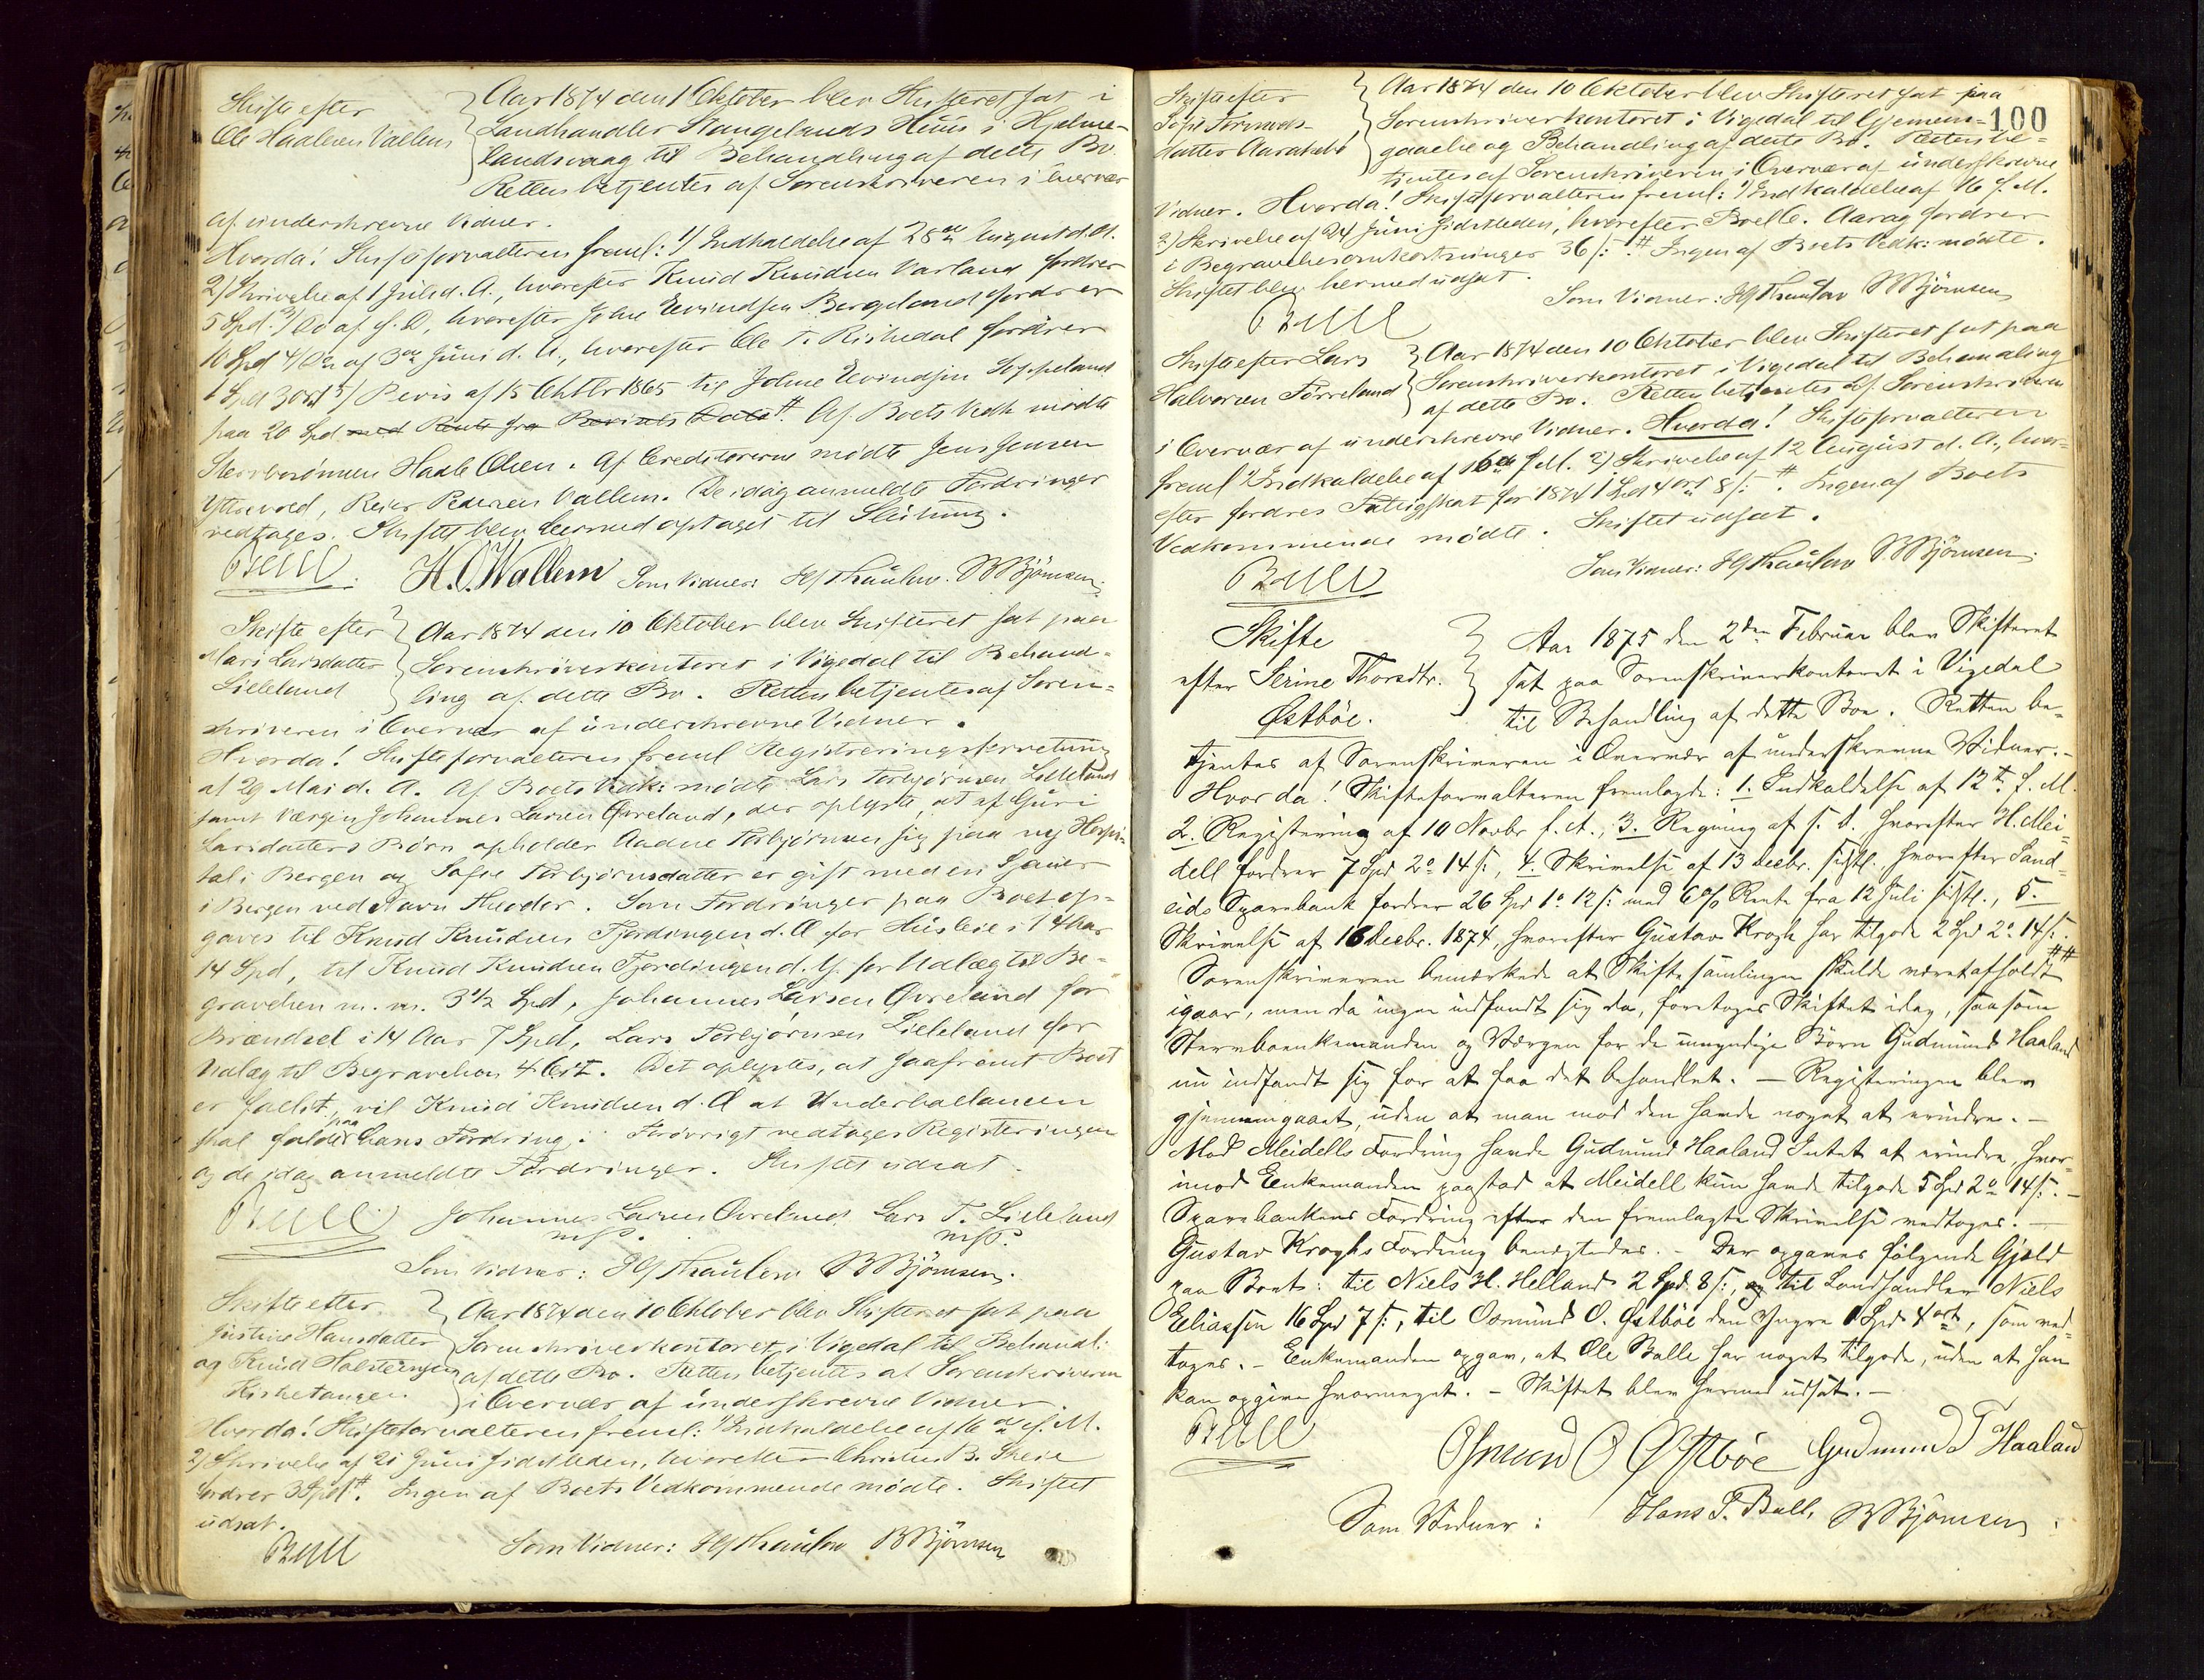 Skifte efter
Ole Haalesen Vallem
Aar 1874 den 1 Oktober blev Skifteret sat i
Landhandler Stangelands Huus i Hjelme-
landsvaag til Behandling af dette Bo.
Retten betjentes af Sorenskriveren i Overvær
af underskrevne Vidner.
Hvorda! Skifteforvalteren freml: 1/ Indkaldelse af 28de August d. A.
2/ Skrivelse af 1 Juli d. A., hvorefter Knud Knudsen Varland fordrer
5 Spd. 3/ Do af s. D, hvorefter John Eivindsen Bergeland fordrer
10 Spd 4/ Do af 3die Juni d. A., hvorefter Ole T. Riskedal fordrer
1 Spd 3 ort 5/ Bevis af 15 Oktbr 1865 til Johne Eivindsen Soppeland
paa 20 Spd med Rente fra Bevisets Dato #. Af Boets Vedk mødte
Stervbosønnen Haale Olsen. Af Creditorerne mødte Jens Jensen
Yttrevold, Reier Pedersen Vallem. De idag anmeldte Fordringer
vedtages. Skiftet blev hermed optaget til Slutning.
Bull. H. O. Wallem Som Vidner: HJThaulow. BBjörnsen.
Skifte efter
Mari Larsdatter
Lilleland
Aar 1874 den 10 Oktober blev Skifteret sat paa
Sorenskriverkontoret i Vigedal til Behand-
ling af dette Bo. Retten betjentes af Soren-
skriveren i Overvær af underskrevne Vidner.
Hvorda! Skifteforvalteren freml Registreringsforretning
af 29 Mai d. A. Af Boets Vedk: mødte Lars Torbjørnsen Lilleland
samt Værgen Johannes Larsen Øvreland, der oplyste, at af Guri
Larsdatters Børn opholder Aadne Torbjørnsen sig paa ny Hospi-
tal i Bergen og Sofie Torbjørnsdatter er gift med en Tjener
i Bergen ved Navn Theodor. Som Fordringer paa Boet op-
gaves til Knud Knudsen Fjordingen d. Æ for Husleie i 14 Aar
14 Spd, til Knud Knudsen Fjordingen d. Y. for Udlæg til Be-
gravelsen m. m. 3½ Spd, Johannes Larsen Øvreland for
Brændsel i 14 Aar 7 Spd, Lars Torbjørnsen Lilleland for
Udlæg til Begravelsen 4 Ort. Det oplystes, at saafremt Boet
er fallit, vil Knud Knudsen d. Æ at Underballancen
skal falde paa hans Fordring. Forøvrigt vedtages Registeringen
og de idag anmeldte Fordringer. Skiftet udsat.
Bull Johannes Larsen Øvreland Lars T. Lilleland
m/P. m/P.
Som Vidner: HJThaulow BBjörnsen.
Skifte efter
Justine Hansdatter
og Knud Halsteinsen
Kisketangen.
Aar 1874 den 10 Oktober blev Skifteret sat paa
Sorenskriverkontoret i Vigedal til Behandl:
af dette Bo. Retten betjentes af Sorenskriveren
i Overvær af underskrevne Vidner.
Hvorda! Skifteforvalteren freml: 1/ Indkaldelse af 16de f. M.
2/ Skrivelse af 21 Juni sidstleden, hvorefter Christen B. Skeie
fordrer 3 Spd #. Ingen af Boets Vedkommende mødte. Skiftet
udsat.
Bull Som Vidner: HJThaulow BBjörnsen
100
Skifte efter
Datter Aarakebø
Aar 1874 den 10 Oktober blev Skifteret sat paa
Sorenskriverkontoret i Vigedal til Gjennem-
gaaelse og Behandling af dette Bo. Retten be-
tjentes af Sorenskriveren i Overvær af underskrevne
Vidner. Hvorda! Skifteforvalteren freml: 1/ Indkaldelse af 16 f. M.
2/ Skrivelse af 24 Juni sidstleden, hvorefter Poul C. Aarag fordrer
i Begravelsesomkostninger 36 /: # Ingen af Boets Vedk: mødte.
Skiftet blev hermed udsat.
Bull Som Vidner: HJThaulow BBjörnsen
Skifte efter Lars
Halvorsen Førreland
Aar 1874 den 10 Oktober blev Skifteret sat paa
Sorenskriverkontoret i Vigedal til Behandling
af dette Bo. Retten betjentes af Sorenskriveren
i Overvær af underskrevne Vidner. Hvorda! Skifteforvalteren
freml 1/ Indkaldelse af 16de f. M. 2/ Skrivelse af 12 August d. A., hvor-
efter fordres Fattigskat for 1874 1 Spd 4 ort 8 /: #. Ingen af Boets
Vedkommende mødte. Skiftet udsat.
Bull Som Vidner: HJThaulow BBjörnsen.
Skifte
efter Serine Thorsdtr.
Østböe.
Aar 1875 den 2den Februar blev Skifteret
sat paa Sorenskriverkontoret i Vigedal
til Behandling af dette Boe. Retten be-
tjentes af Sorenskriveren i Overvær af underskrevne Vidner.-
Hvor da! Skifteforvalteren fremlagde: 1. Indkaldelse af 12te f. M.
2. Registering af 10 Novbr f. A., 3. Regning af s. D. hvorefter H. Mei-
dell fordrer 7 Spd 2o 14 /:, 4. Skrivelse af 13 Decbr. sidstl. hvorefter Sand-
eids Sparebank fordrer 26 Spd 1o 12 /: med 6% Rente fra 12 Juli sidstl., 5.
Skrivelse af 16 Decbr. 1874, hvorefter Gustav Krogh har tilgode 2 Spd 2o 14 /:.
##
Sorenskriveren bemærkede at Skiftesamlingen skulde været afholdt
igaar, men da ingen indfandt sig da, foretages Skiftet idag, saasom
Stervboenkemanden og Værgen for de umyndige Børn Gudmund Haaland
nu indfandt sig for at faa det behandlet. — Registeringen blev
gjennemgaaet, uden at man mod den havde noget at erindre. —
Mod Meidells Fordring havde Gudmund Haaland Intet at erindre, hvor-
imod Enkemanden paastod at Meidell kun havde tilgode 5 Spd 2o 14 /:. —
Sparebankens Fordring efter den fremlagte Skrivelse vedtoges. —
Gustav Kroghs Fordring benegtedes. - Der opgaves følgende Gjæld
paa Boet: til Niels H. Helland 2 Spd. 8 /:, og til Landhandler Niels
Eeliassen 16 Spd 7 /:, til Osmund O. Østböe den Yngre 1 Spd 4 ort, som ved-
toges. - Enkemanden opgav, at Ole Balle har noget tilgode, uden at han
kan opgive hvormeget. - Skiftet blev hermed udsat. —
Bull Osmund O Østböe Gudmund T Haaland
Som Vidner: Hans P. Ball, BBjörnsen.